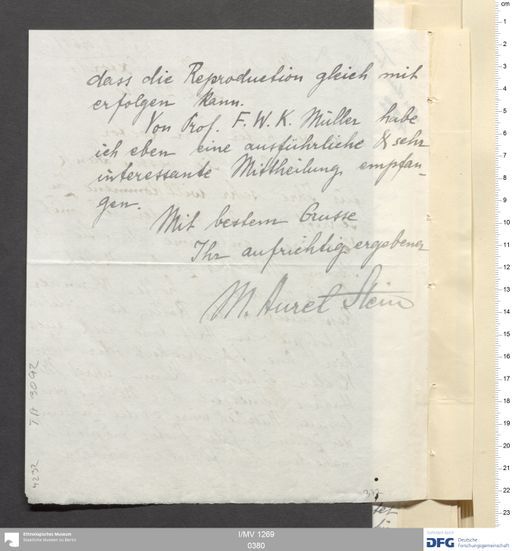 dass die Reproduction gleich mit
erfolgen kann.
Von Prof. F. W. K. Müller habe
ich eben eine ausführliche & sehr
interessante Mittheilung empfan-
gen.
Mit bestem Grusse
Ihr aufrichtig ergebener
M. Aurel Stein
cm
1
2
3
4
5
6
7
8
9
10
11
12
13
14
15
16
17
18
19
20
21
22
23
Ethnologisches Museum
Staatliche Museen zu Berlin
I/MV 1269
0380
Gefördert durch
DFG Deutsche
Forschungsgemeinschaft